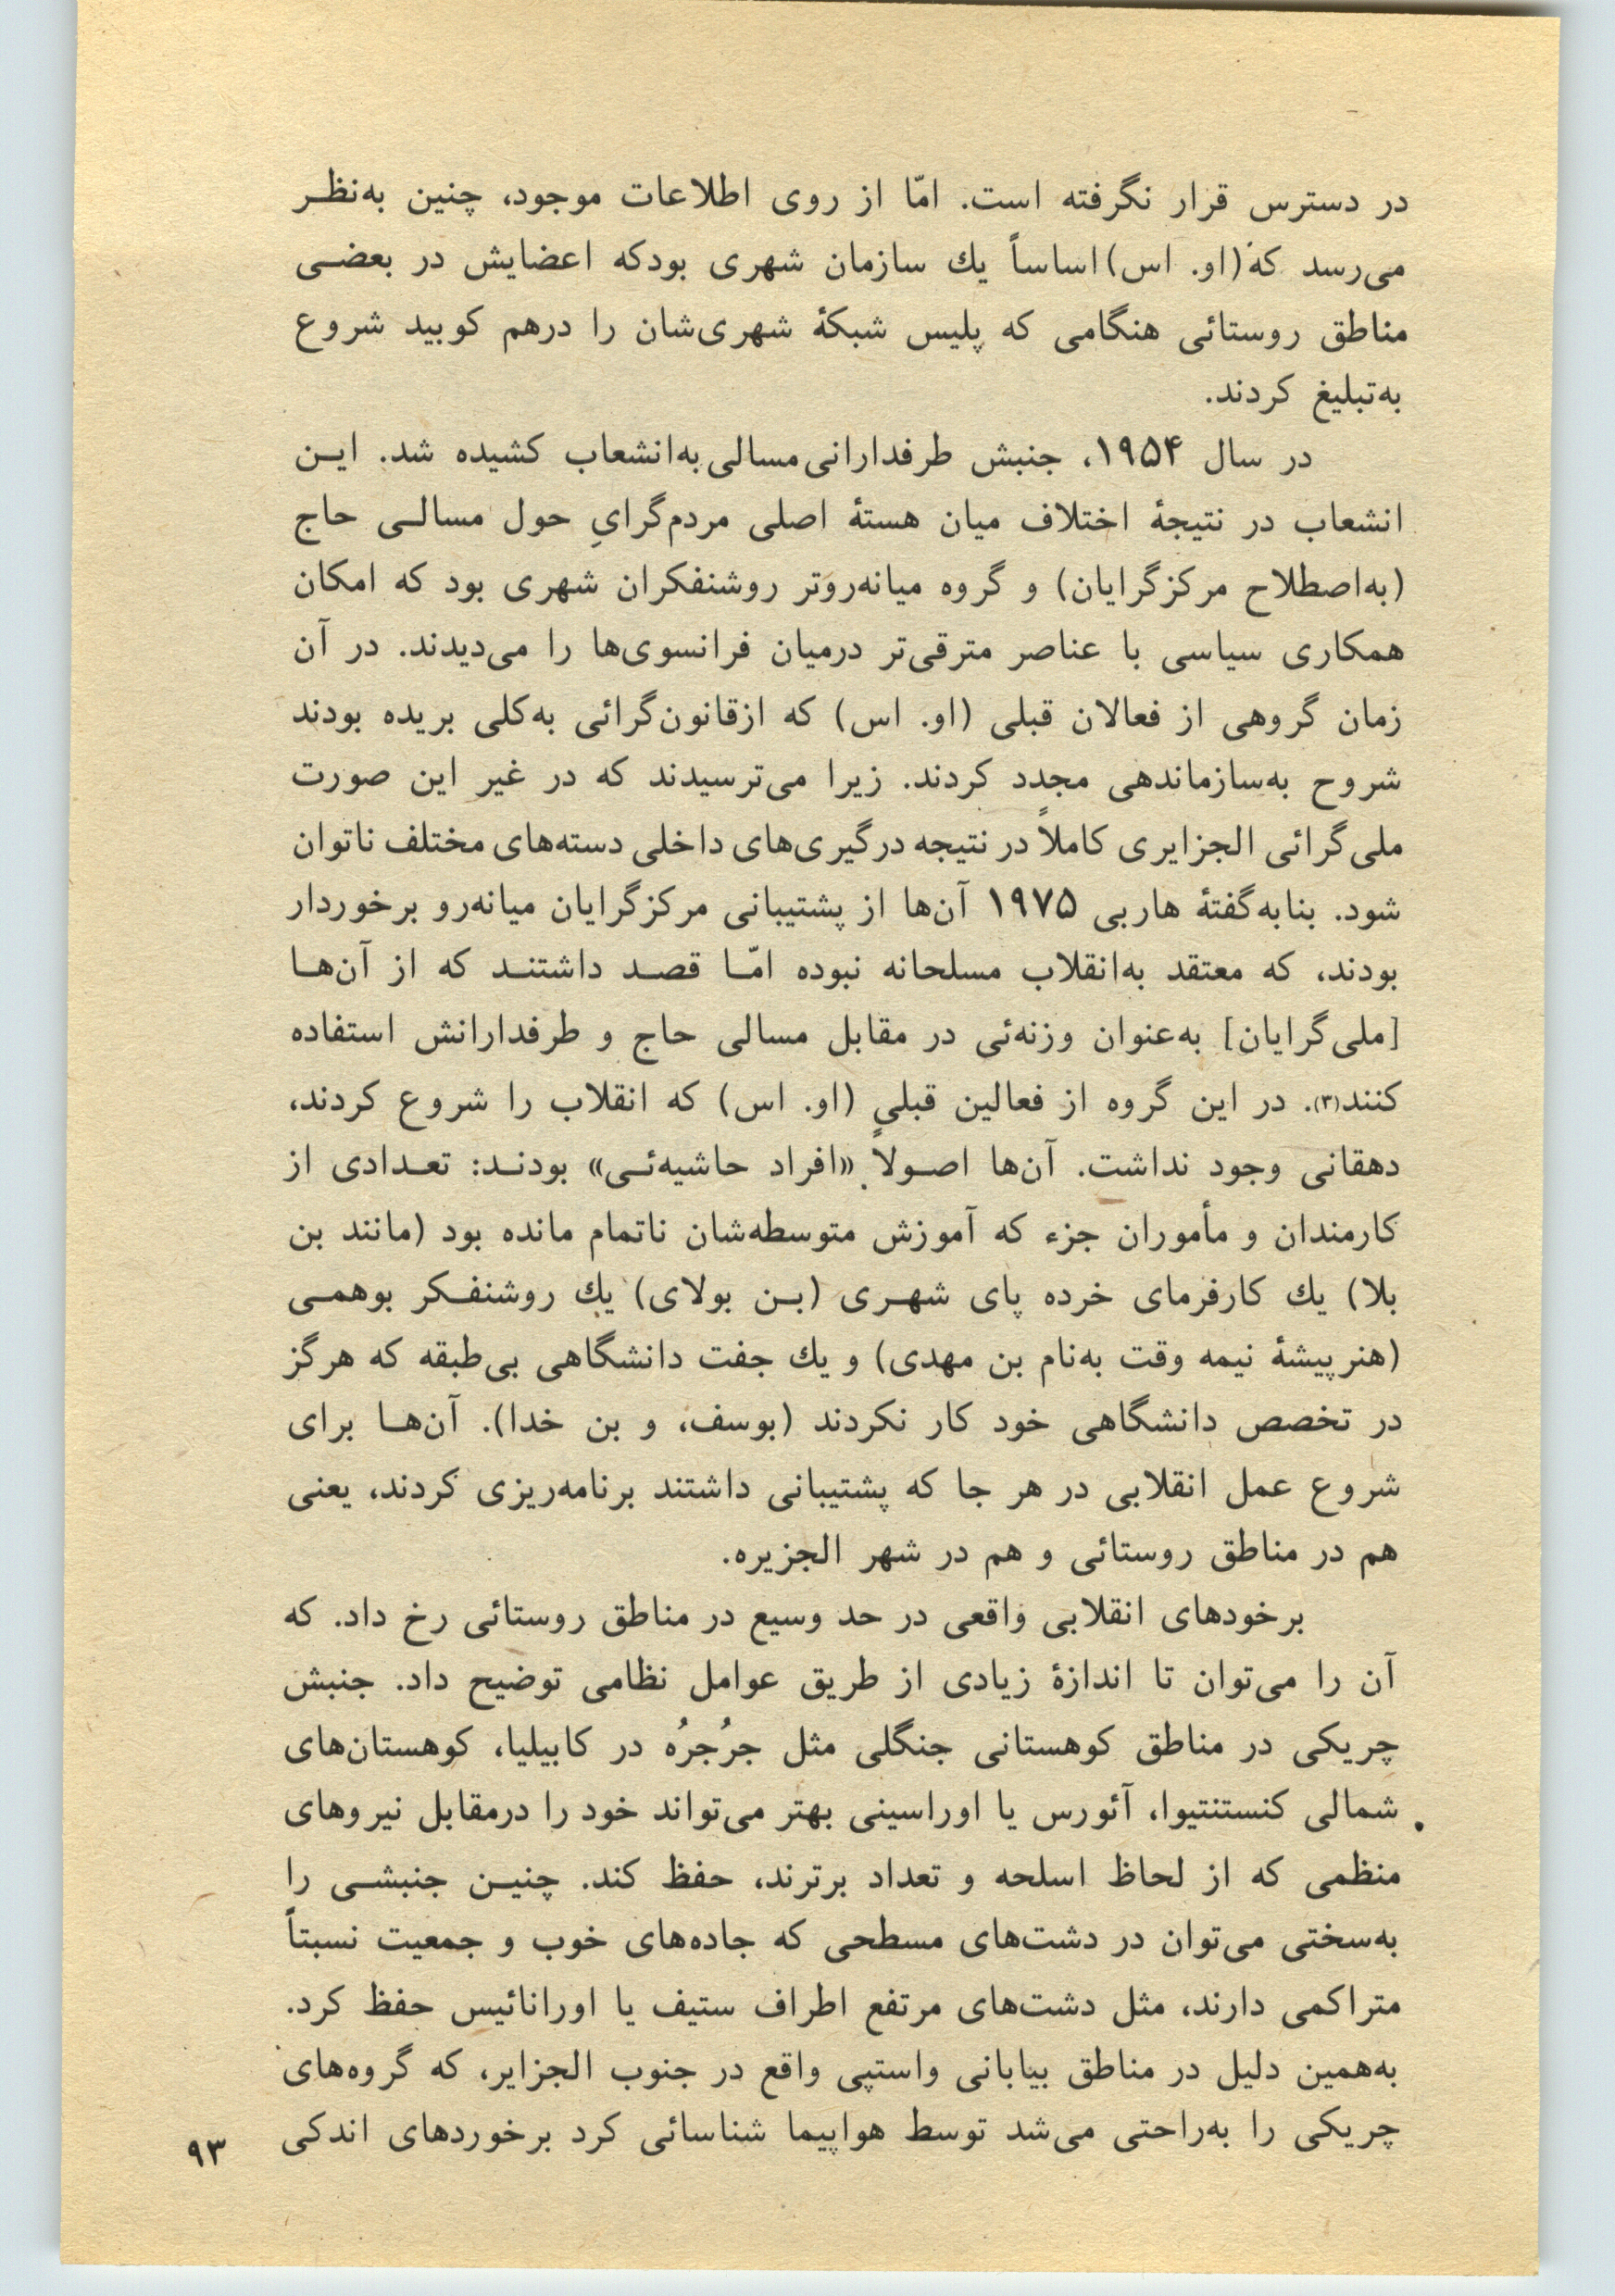 در دسترس قرار نگرفته است. امّا از روی اطلاعات موجود، چنین به‌نظر
می‌رسد که (او. اس) اساساً یك سازمان شهری بودکه اعضایش در بعضی
مناطق روستائی هنگامی که پلیس شبکهٔ شهری‌شان را درهم کوبید شروع
به‌تبلیغ کردند.
در سال ۱۹۵۴، جنبش طرفدارانی‌مسالی به‌انشعاب کشیده شد. این
انشعاب در نتیجهٔ اختلاف میان هستهٔ اصلی مردم‌گرایِ حول مسالی حاج
(به‌اصطلاح مرکزگرایان) و گروه میانه‌روتر روشنفکران شهری بود که امکان
همکاری سیاسی با عناصر مترقی‌تر درمیان فرانسوی‌ها را می‌دیدند. در آن
زمان گروهی از فعالان قبلی (او. اس) که ازقانون‌گرائی به‌کلی بریده بودند
شروح به‌سازماندهی مجدد کردند. زیرا می‌ترسیدند که در غیر این صورت
ملی‌گرائی الجزایری کاملاً در نتیجه درگیری‌های داخلی دسته‌های مختلف ناتوان
شود. بنابه‌گفتهٔ هاربی ۱۹۷۵ آن‌ها از پشتیبانی مرکزگرایان میانه‌رو برخوردار
بودند، که معتقد به‌انقلاب مسلحانه نبوده امّا قصد داشتند که از آن‌ها
[ملی‌گرایان] به‌عنوان وزنه‌ئی در مقابل مسالی حاج و طرفدارانش استفاده
کنند(۳). در این گروه از فعالین قبلی (او. اس) که انقلاب را شروع کردند،
دهقانی وجود نداشت. آن‌ها اصولاً «افراد حاشیه‌ئی» بودند: تعدادی از
کارمندان و مأموران جزء که آموزش متوسطه‌شان ناتمام مانده بود (مانند بن
بلا) یك کارفرمای خرده پای شهری (بن بولای) یك روشنفکر بوهمی
(هنرپیشهٔ نیمه وقت به‌نام بن مهدی) و یك جفت دانشگاهی بی‌طبقه که هرگز
در تخصص دانشگاهی خود کار نکردند (بوسف، و بن خدا). آن‌ها برای
شروع عمل انقلابی در هر جا که پشتیبانی داشتند برنامه‌ریزی کردند، یعنی
هم در مناطق روستائی و هم در شهر الجزیره.
برخودهای انقلابی واقعی در حد وسیع در مناطق روستائی رخ داد. که
آن را می‌توان تا اندازهٔ زیادی از طریق عوامل نظامی توضیح داد. جنبش
چریکی در مناطق کوهستانی جنگلی مثل جرُجرُه در کابیلیا، کوهستان‌های
شمالی کنستنتیوا، آئورس یا اوراسینی بهتر می‌تواند خود را درمقابل نیروهای
منظمی که از لحاظ اسلحه و تعداد برترند، حفظ کند. چنین جنبشی را
به‌سختی می‌توان در دشت‌های مسطحی که جاده‌های خوب و جمعیت نسبتاً
متراکمی دارند، مثل دشت‌های مرتفع اطراف ستیف یا اورانائیس حفظ کرد.
به‌همین دلیل در مناطق بیابانی واستپی واقع در جنوب الجزایر، که گروه‌های
چریکی را به‌راحتی می‌شد توسط هواپیما شناسائی کرد برخوردهای اندکی
۹۳